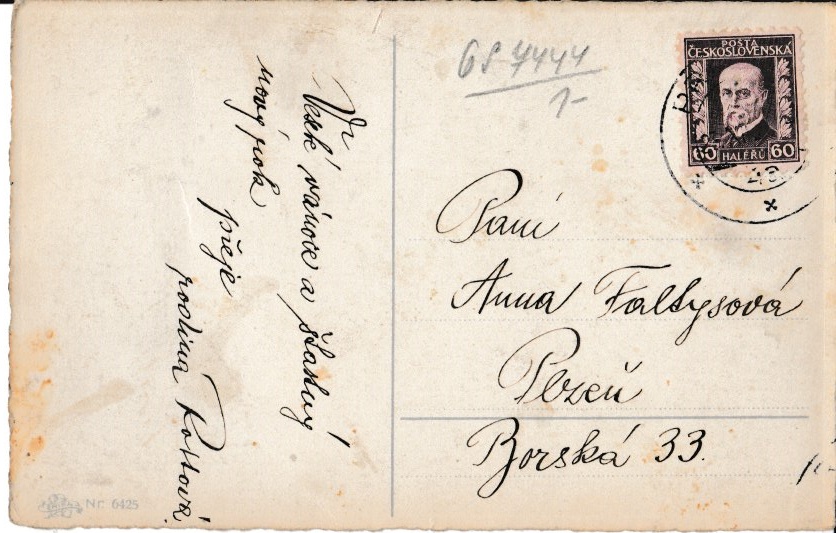 Veselé vánoce a šťastný
nový rok
přeje
rodina
Nr. 6425
POŠTA
ČESKOSLOVENSKÁ
60 HALÉŘŮ 60
Paní
Anna Faltysová
Plzeň
Borská 33.